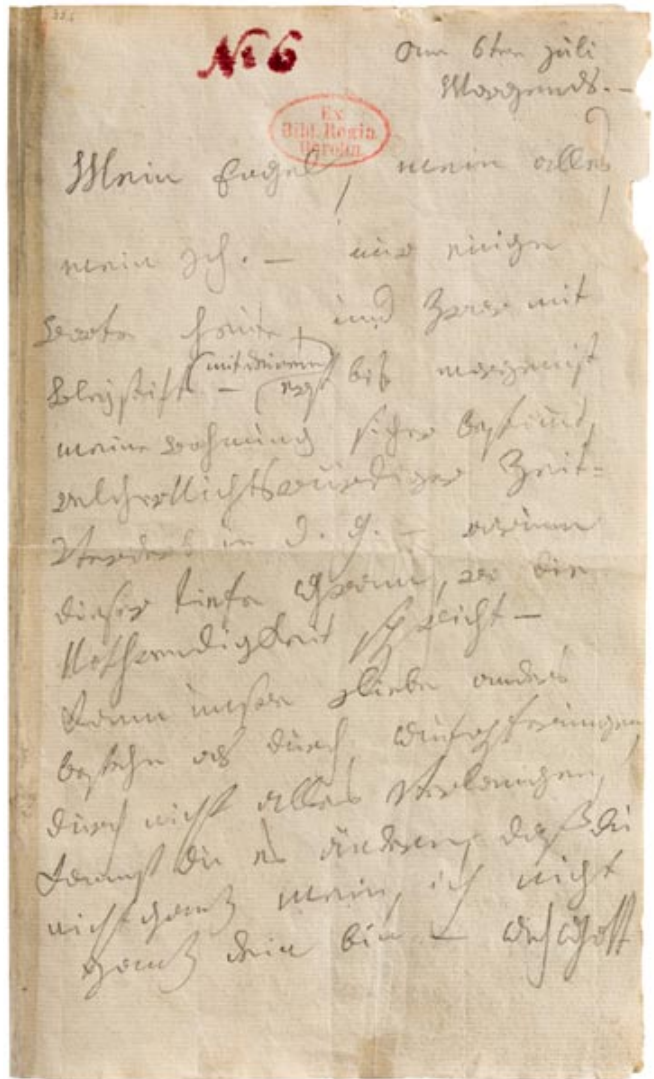 No 6
am 6ten juli
Morgends. —
Ex
Bibl. Regia
Berolin.
Mein Engel, mein alles,
mein Ich. — nur einige
Worte heute, und zwar mit
Bleystift — (mit deinem)
erst bis morgen ist
meine Wohnung sicher bestimmt,
welcher Nichtswürdiger Zeit-
Verderb in d. g. — warum
dieser tiefe Gram, wo die
Nothwendigkeit spricht —
Kann unsre Liebe anders
bestehn als durch Aufopferungen,
durch nicht alles verlangen,
kannst du es ändern, daß du
nicht ganz mein, ich nicht
ganz dein bin — Ach Gott